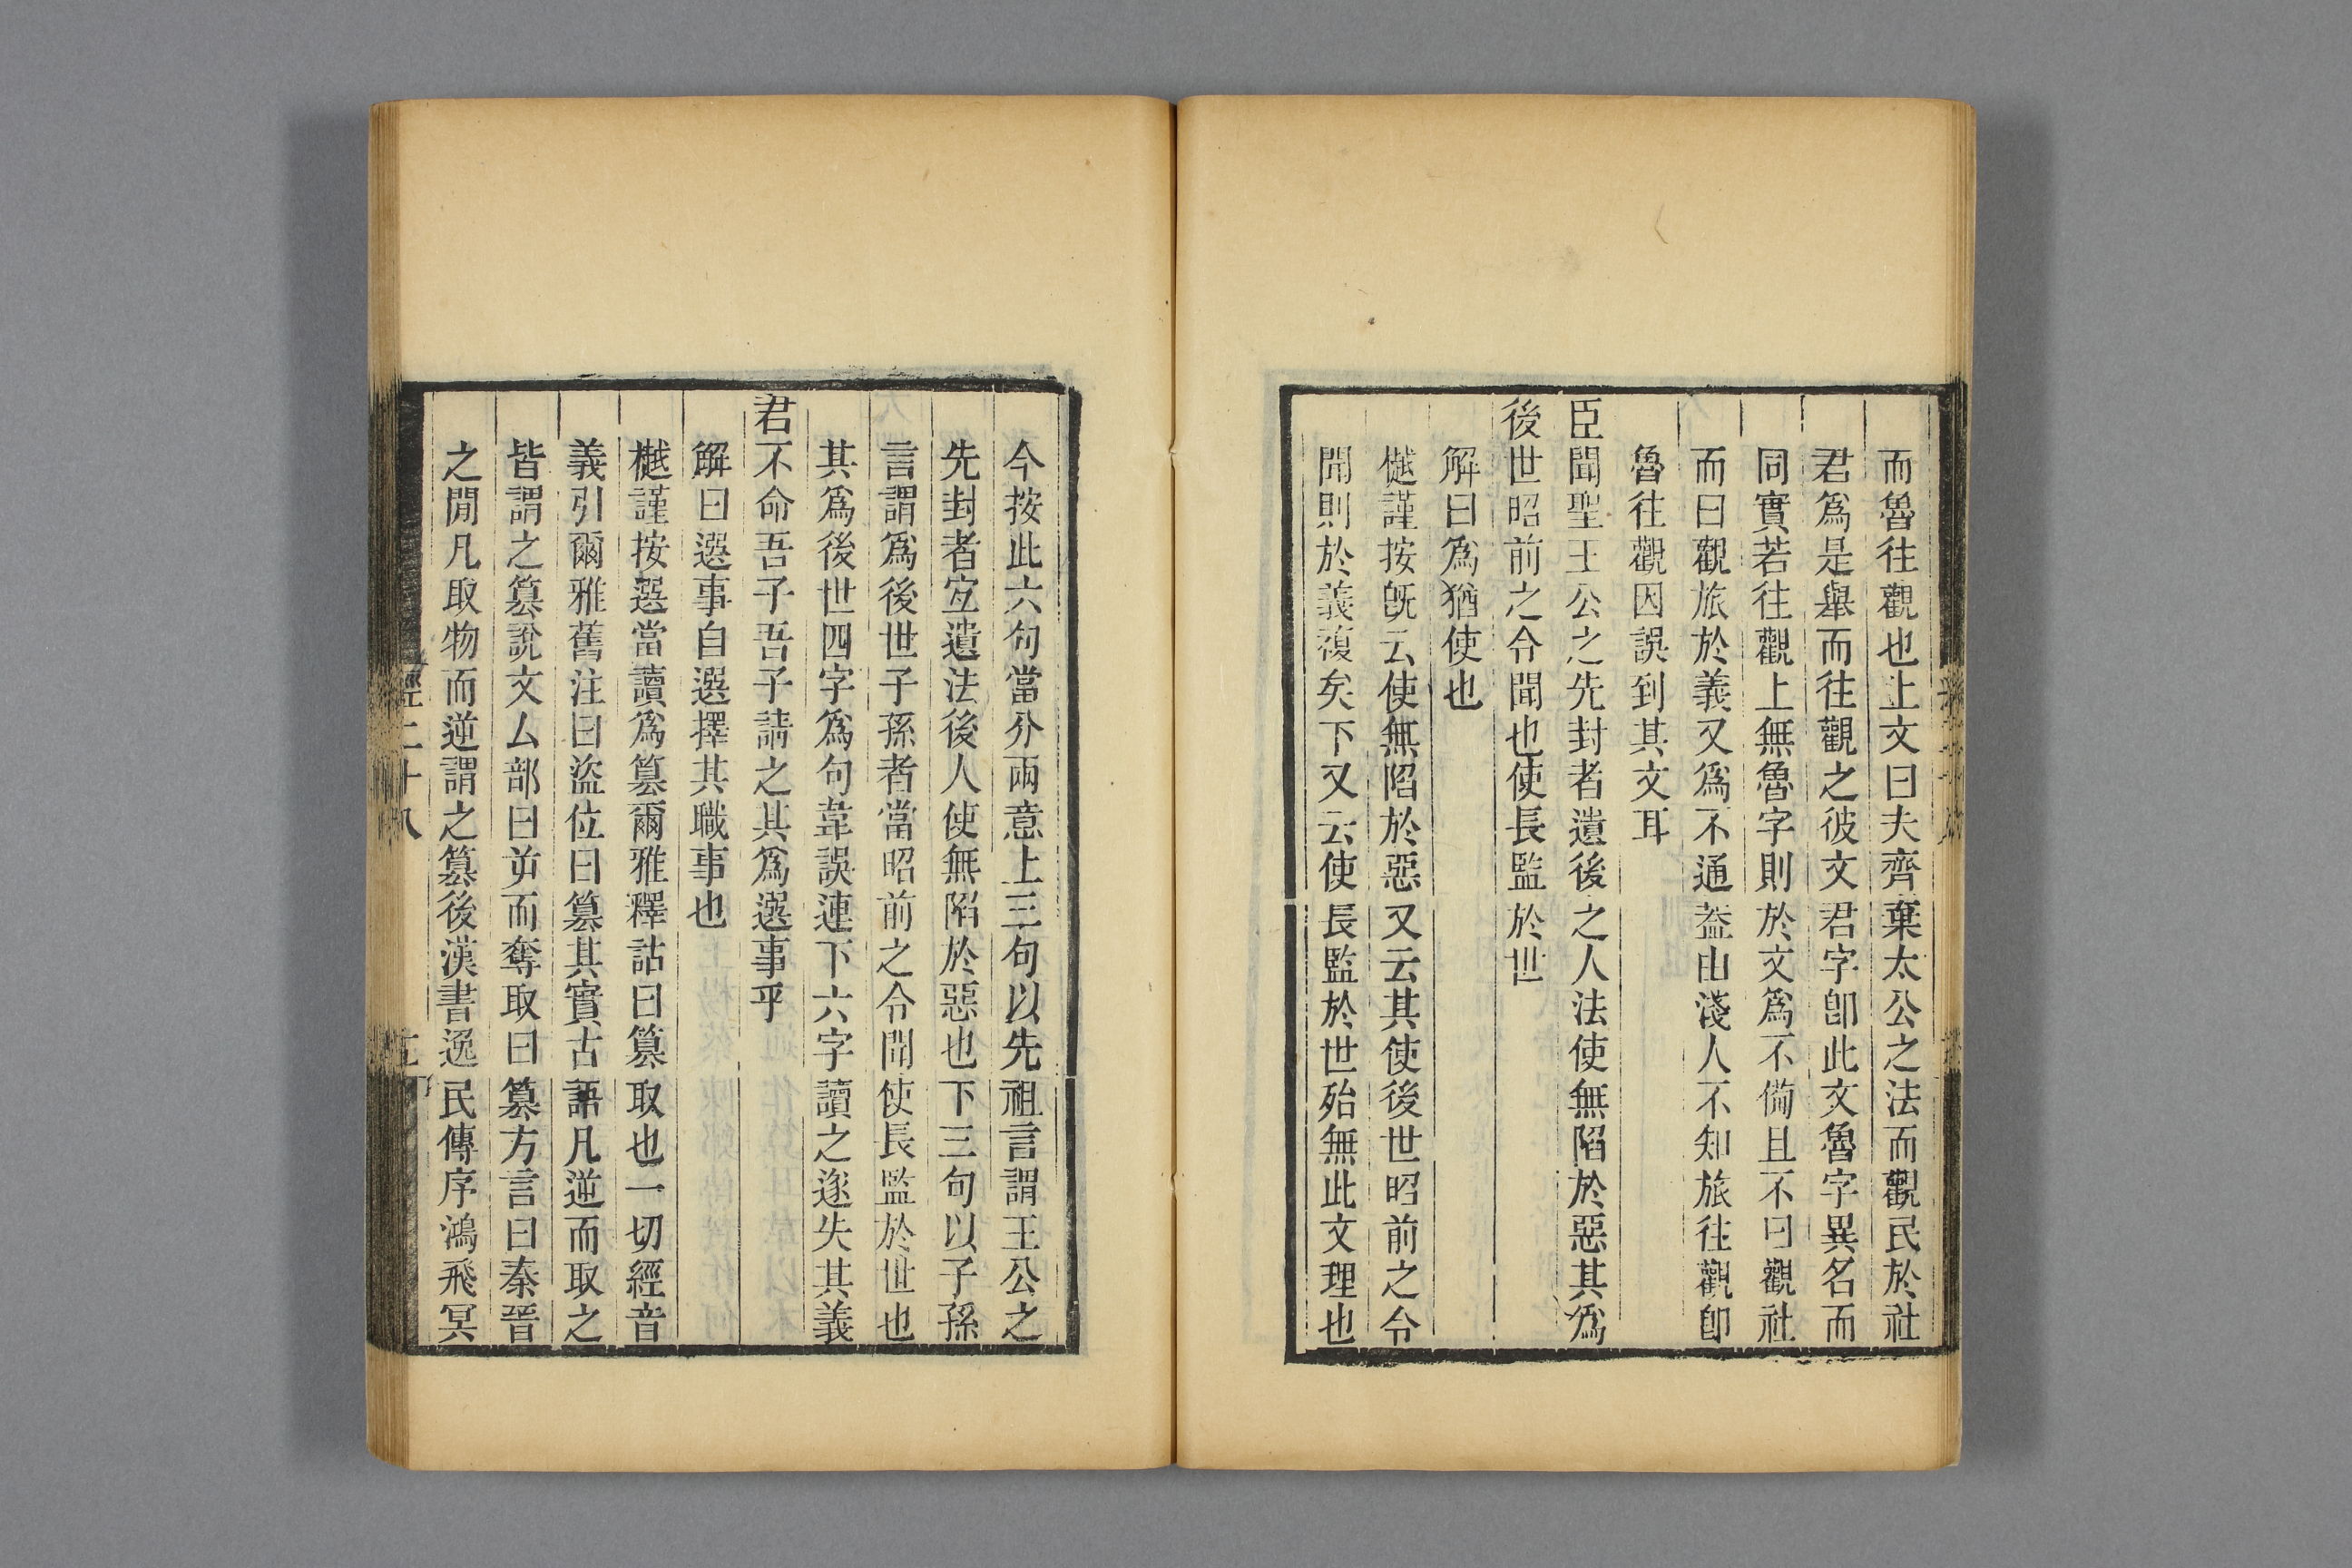 而魯往觀也上文曰夫齊棄太公之法而觀民於社
君爲是舉而往觀之彼文君字卽此文魯字異名而
同實若往觀上無魯字則於文爲不僃且不曰觀社
而曰觀旅於義又爲不通葢由淺人不知旅往觀卽
魯往觀因誤到其文耳
臣聞聖王公之先封者遺後之人法使無陷於惡其爲
後世昭前之令聞也使長監於世
解曰爲猶使也
樾謹按旣云使無陷於惡又云其使後世昭前之令
聞則於義複矣下又云使長監於世殆無此文理也
今按此六句當分兩意上三句以先祖言謂王公之
先封者宐遺法後人使無陷於惡也下三句以子孫
言謂爲後世子孫者當昭前之令聞使長監於世也
其爲後世四字爲句韋誤連下六字讀之遂失其義
君不命吾子吾子請之其爲選事乎
解曰選事自選擇其職事也
樾謹按選當讀爲篡爾雅釋詁曰篡取也一切經音
義引爾雅舊注曰盜位曰篡其實古語凡逆而取之
皆謂之篡說文厶部曰屰而奪取曰篡方言曰秦晉
之閒凡取物而逆謂之篡後漢書逸民傳序鴻飛冥
經二十八